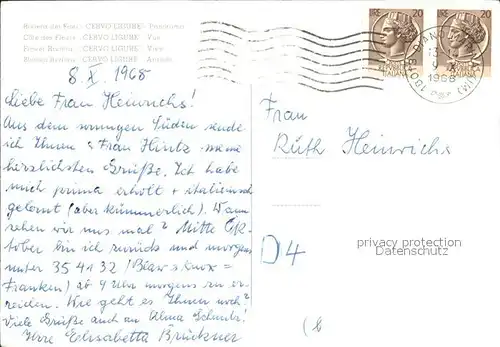 Riviera dei Fiori - CERVO LIGURE - Panorama
Côte des Fleurs - CERVO LIGURE - Vue
Flower Riviera - CERVO LIGURE - View
Blumen Riviera - CERVO LIGURE - Ansicht
8. X. 1968
Liebe Frau Heinrichs!
Aus dem sonnigen Süden sende
ich Ihnen + Frau Hintz meine
herzlichsten Grüße. Ich habe
mich prima erholt + italienisch
gelernt (aber kümmerlich). Wann
sehen wir uns mal? Mitte Ok-
tober bin ich zurück und morgens
unter 35 41 32 (Blaw s. Knox =
Franken) ab 9 Uhr morgens zu er-
reichen. Wie geht es Ihnen noch?
Viele Grüße auch an Alma Schultz!
Ihre Elisabetta Brückner
Frau
Ruth Heinrichs
D4
privacy protection
Datenschutz
20
ITALIANA
20
ITALIANA
1968